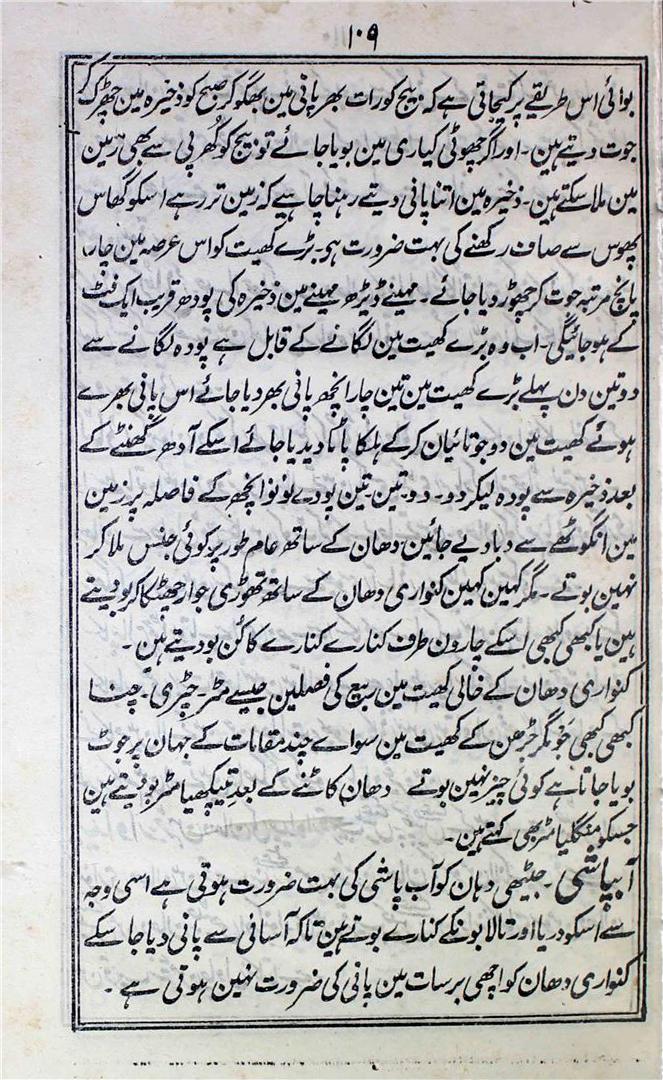 ۱۰۹
بوائی اس طریقے پر کیجاتی ہے کہ بیج کو رات بھر پانی مین بھگو کر صبح کو ذخیرہ مین چھڑک کر
جوت دیتے ہین۔ اور اگر چھوٹی کیاری مین بویا جائے تو بیج کو کُھرپی سے بھی زمین
مین ملا سکتے ہین۔ ذخیرہ مین اتنا پانی دیتے رہنا چاہیے کہ زمین تر رہے اسکو گھاس
پھوس سے صاف رکھنے کی بہت ضرورت ہو۔ بڑے کھیت کو اس عرصہ مین چار
پانچ مرتبہ جوت کر چھوڑ دیا جائے۔ مہینے ڈیڑھ مہینے مین ذخیرہ کی پودھ قریب ایک فٹ
کے ہو جائیگی۔ اب وہ بڑے کھیت مین لگانے کے قابل ہے پودہ لگانے سے
دو تین دن پہلے بڑے کھیت مین تین چار انچھ پانی بھر دیا جائے اس پانی بھرے
ہوئے کھیت مین دو جوتائیان کر کے ہلکا پاٹا دیدیا جائے اسکے آدھ گھنٹے کے
بعد ذخیرہ سے پودہ لیکر دو۔ دو۔ تین۔ تین پودے نو نو انچھ کے فاصلہ پر زمین
مین انگوٹھے سے دبا دیے جائین۔ دھان کے ساتھ عام طور پر کوئی جنس ملا کر
نہین بوتے۔ مگر کہین کہین کنواری دھان کے ساتھ تھوڑی جوار چھٹکا کر بو دیتے
ہین یا کبھی کبھی اسکے چارون طرف کنارے کنارے کاکُن بو دیتے ہین۔
کنواری دھان کے خالی کھیت مین ربیع کی فصلین جیسے مٹر۔ چپٹری۔ چنا
کبھی کبھی جَو مگر جڑھن کے کھیت مین سواے چند مقامات کے جہان پر جوٹ
بویا جاتا ہے کوئی چیز نہین بوتے دھان کاٹنے کے بعد تیپکھیا مٹر بو دیتے ہین
جسکو منگلیا مٹر بھی کہتے ہین۔
آبپاشی۔ جیٹھی دہان کو آب پاشی کی بہت ضرورت ہوتی ہے اسی وجہ
سے اسکو دریا اور تالابونکے کنارے بوتے ہین تاکہ آسانی سے پانی دیا جا سکے
کنواری دھان کو اچھی برسات مین پانی کی ضرورت نہین ہوتی ہے۔